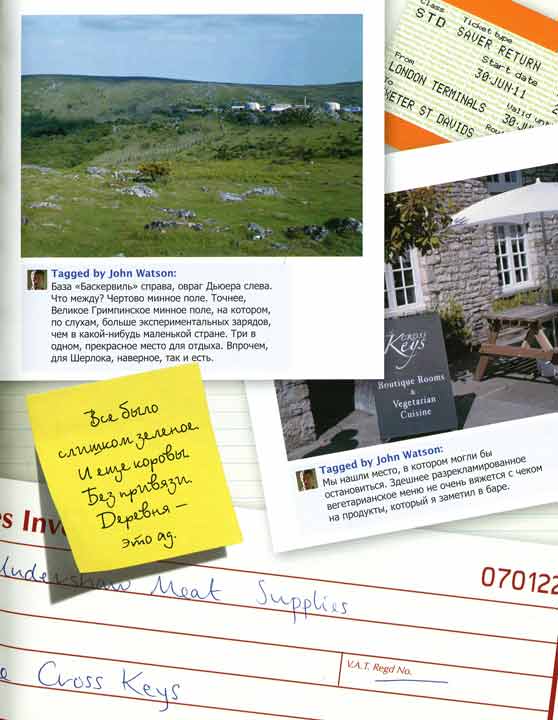 Class
Ticket type
STD SAVER RETURN
Start date
30·JUN·11
From
LONDON TERMINALS
Valid until
To
EXETER ST DAVIDS
30·JU
Tagged by John Watson:
База «Баскервиль» справа, овраг Дьюера слева.
Что между? Чертово минное поле. Точнее,
Великое Гримпинское минное поле, на котором,
по слухам, больше экспериментальных зарядов,
чем в какой-нибудь маленькой стране. Три в
одном, прекрасное место для отдыха. Впрочем,
для Шерлока, наверное, так и есть.
CROSS
Keys
Boutique Rooms
&
Vegetarian
Cuisine
Tagged by John Watson:
Мы нашли место, в котором могли бы
остановиться. Здешнее разрекламированное
вегетарианское меню не очень вяжется с чеком
на продукты, который я заметил в баре.
Все было
слишком зеленое.
И еще коровы.
Без привязи.
Деревня –
это ад.
es Inv
Undershaw Meat Supplies
070122
V.A.T. Regd No.
e Cross Keys